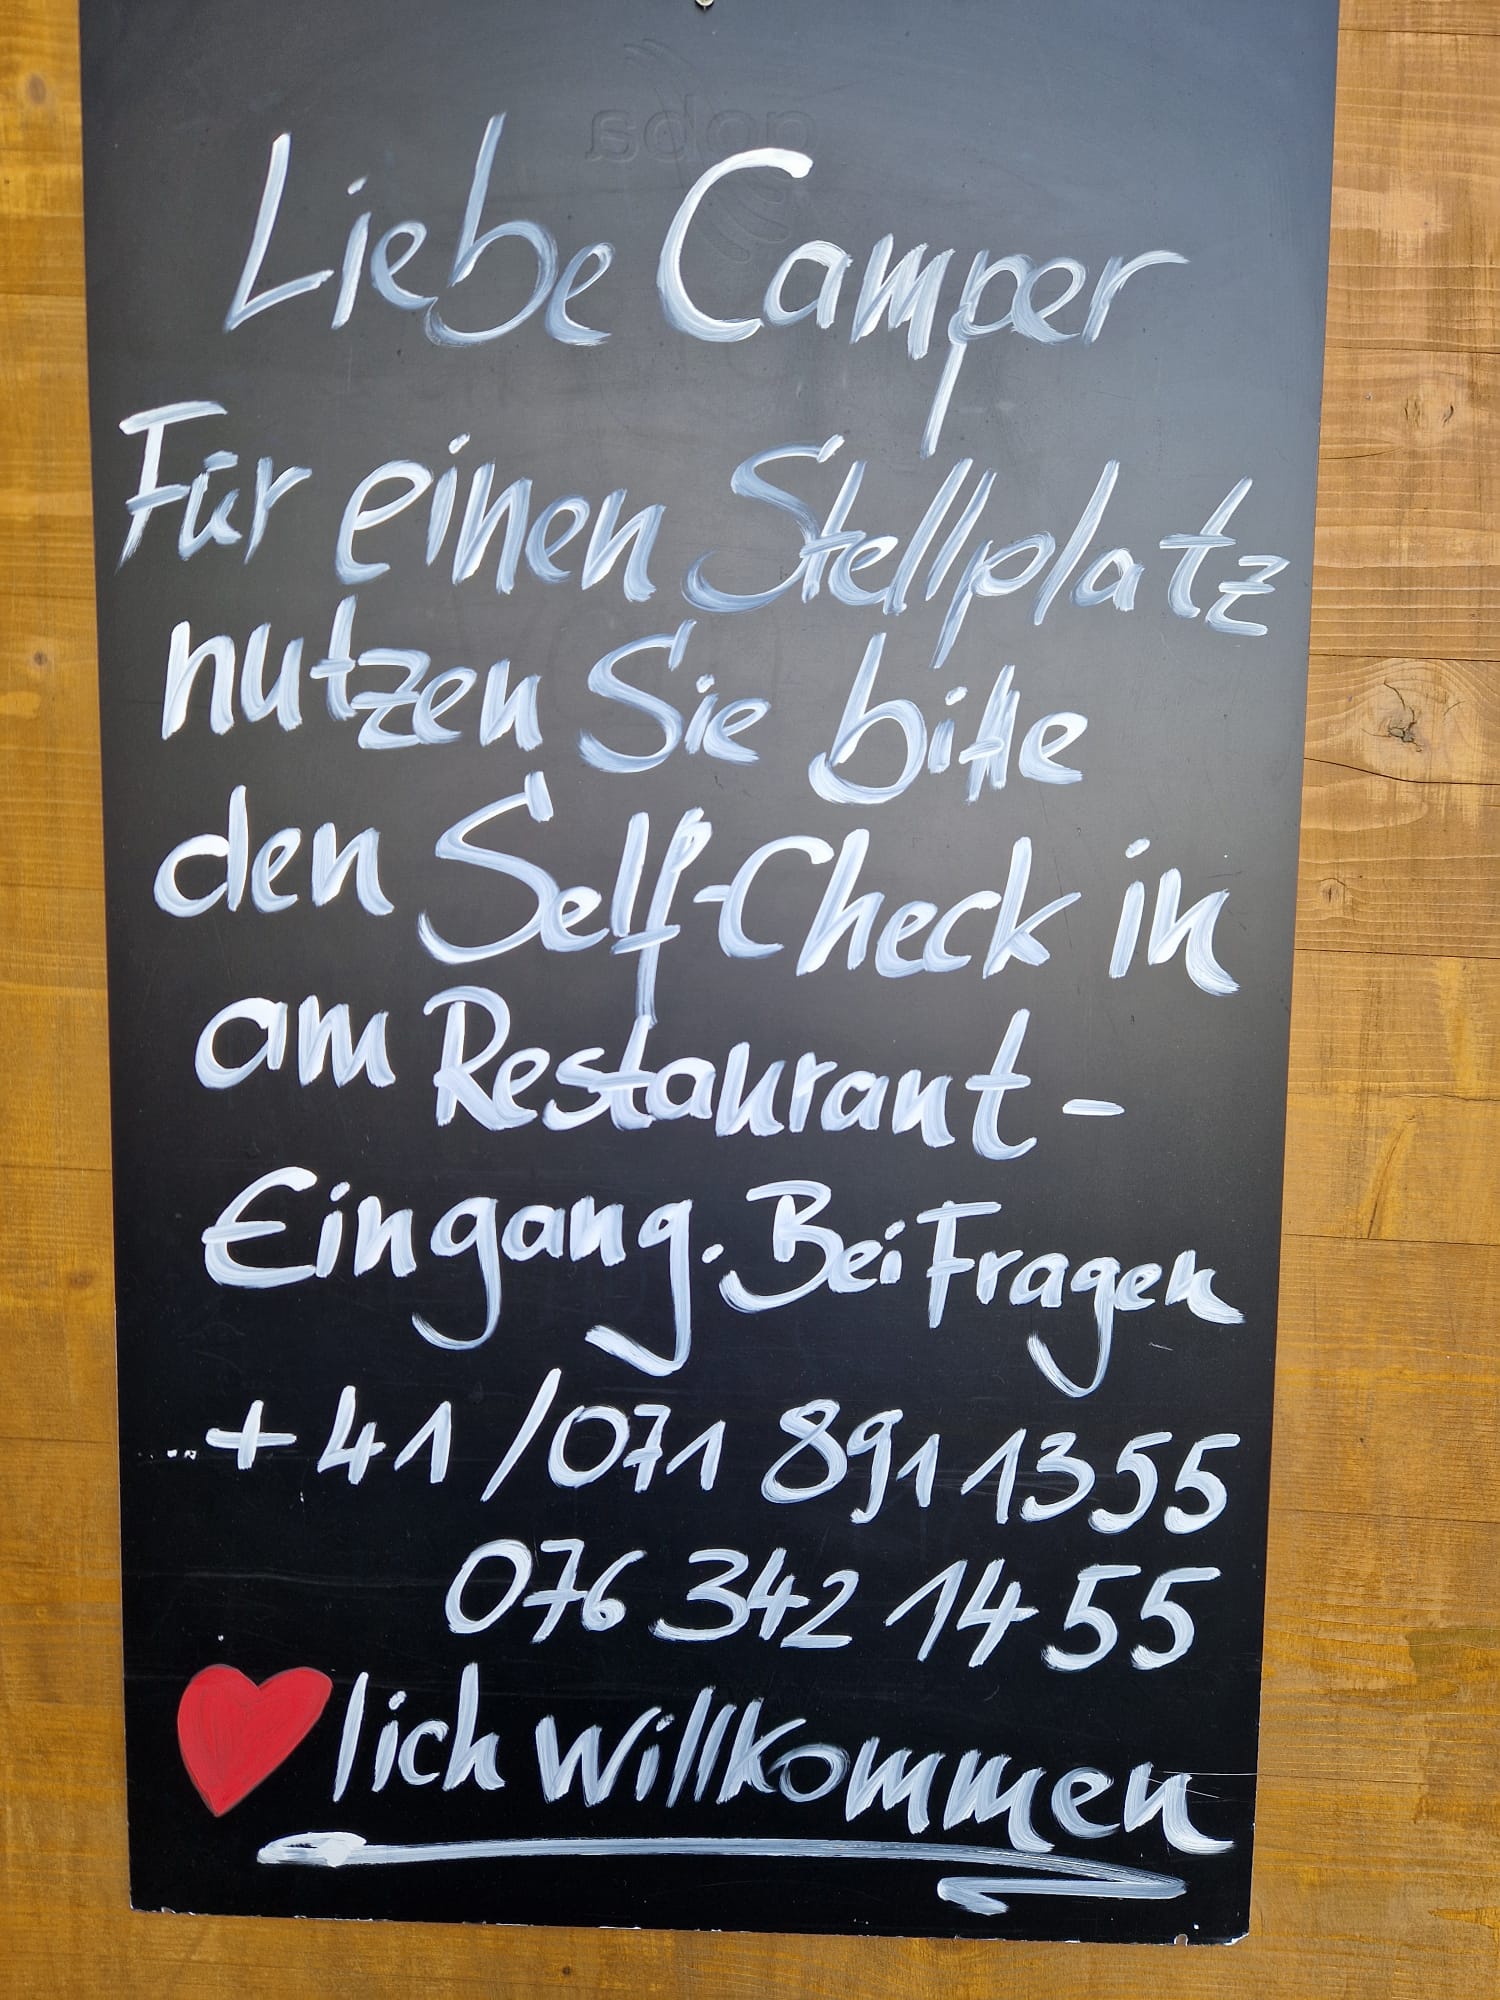 goba
Liebe Camper
Für einen Stellplatz
nutzen Sie bitte
den Self-Check in
am Restaurant-
Eingang. Bei Fragen
+41/071 891 1355
076 342 14 55
lich willkommen